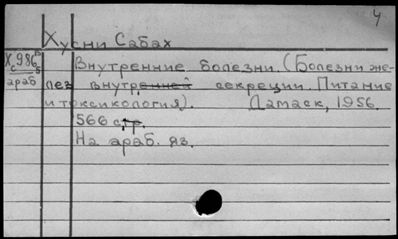 4
Хусни Сабах
Внутренние болезни. (Болезни же-
лез внутренней секреции. Питание
и токсикология). Дамаск, 1956.
566 стр.
На араб. яз.
араб